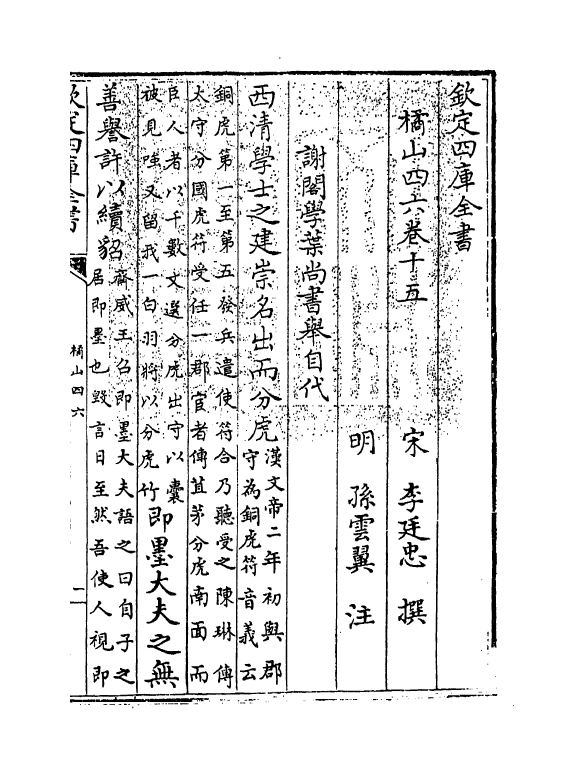 欽定四庫全書
橘山四六卷十五
宋 李廷忠 撰
明 孫雲翼 注
謝閣學葉尚書舉自代
西清學士之建崇名出而分虎漢文帝二年初與郡
守為銅虎符音義云
銅虎第一至第五發兵遣使符合乃聽受之陳琳傳
太守分國虎符受任一郡官者傳苴茅分虎南面而
臣人者以千數文選分虎出守以囊
被見嗤又留我一白羽將以分虎竹即墨大夫之無
善譽許以續貂齊威王召即墨大夫語之曰自子之
居即墨也毀言日至然吾使人視即
欽定四庫全書
橘山四六
二